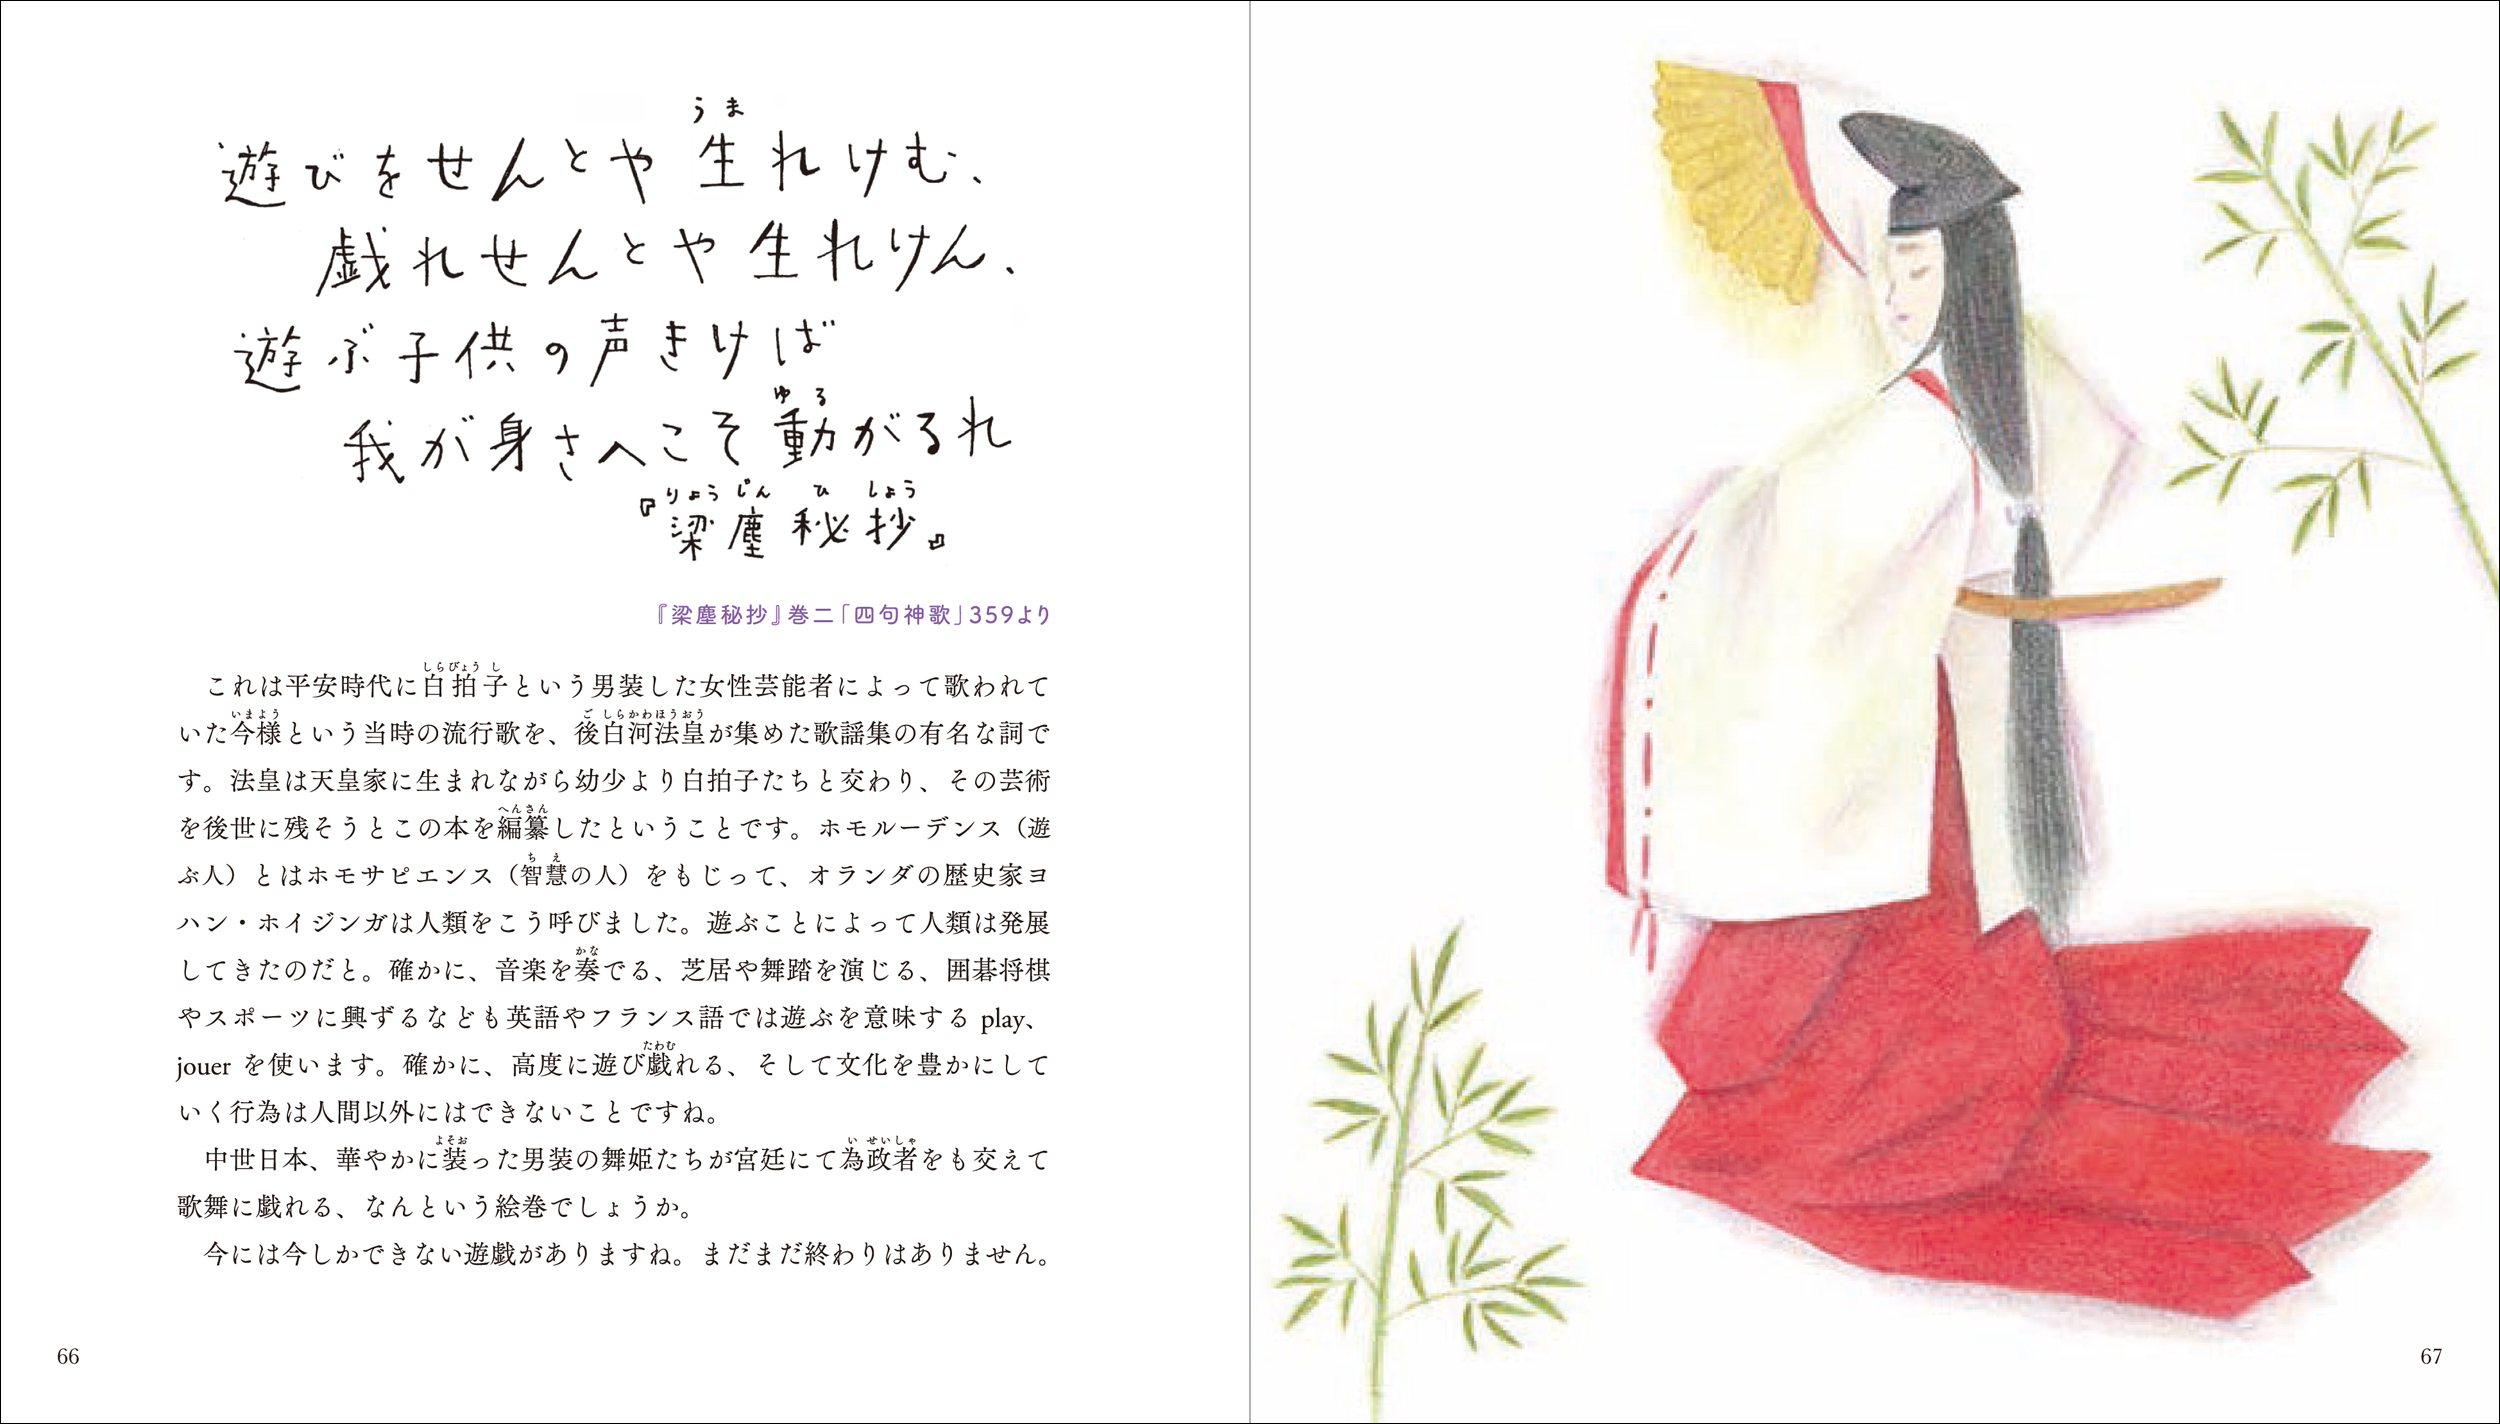 遊びをせんとや生れけむ、
戯れせんとや生れけん、
遊ぶ子供の声きけば
我が身さへこそ動がるれ
『梁塵秘抄』
『梁塵秘抄』巻二「四句神歌」359より
これは平安時代に白拍子という男装した女性芸能者によって歌われて
いた今様という当時の流行歌を、後白河法皇が集めた歌謡集の有名な詞で
す。法皇は天皇家に生まれながら幼少より白拍子たちと交わり、その芸術
を後世に残そうとこの本を編纂したということです。ホモルーデンス（遊
ぶ人）とはホモサピエンス（智慧の人）をもじって、オランダの歴史家ヨ
ハン・ホイジンガは人類をこう呼びました。遊ぶことによって人類は発展
してきたのだと。確かに、音楽を奏でる、芝居や舞踏を演じる、囲碁将棋
やスポーツに興ずるなども英語やフランス語では遊ぶを意味する play、
jouer を使います。確かに、高度に遊び戯れる、そして文化を豊かにして
いく行為は人間以外にはできないことですね。
中世日本、華やかに装った男装の舞姫たちが宮廷にて為政者をも交えて
歌舞に戯れる、なんという絵巻でしょうか。
今には今しかできない遊戯がありますね。まだまだ終わりはありません。
66
67